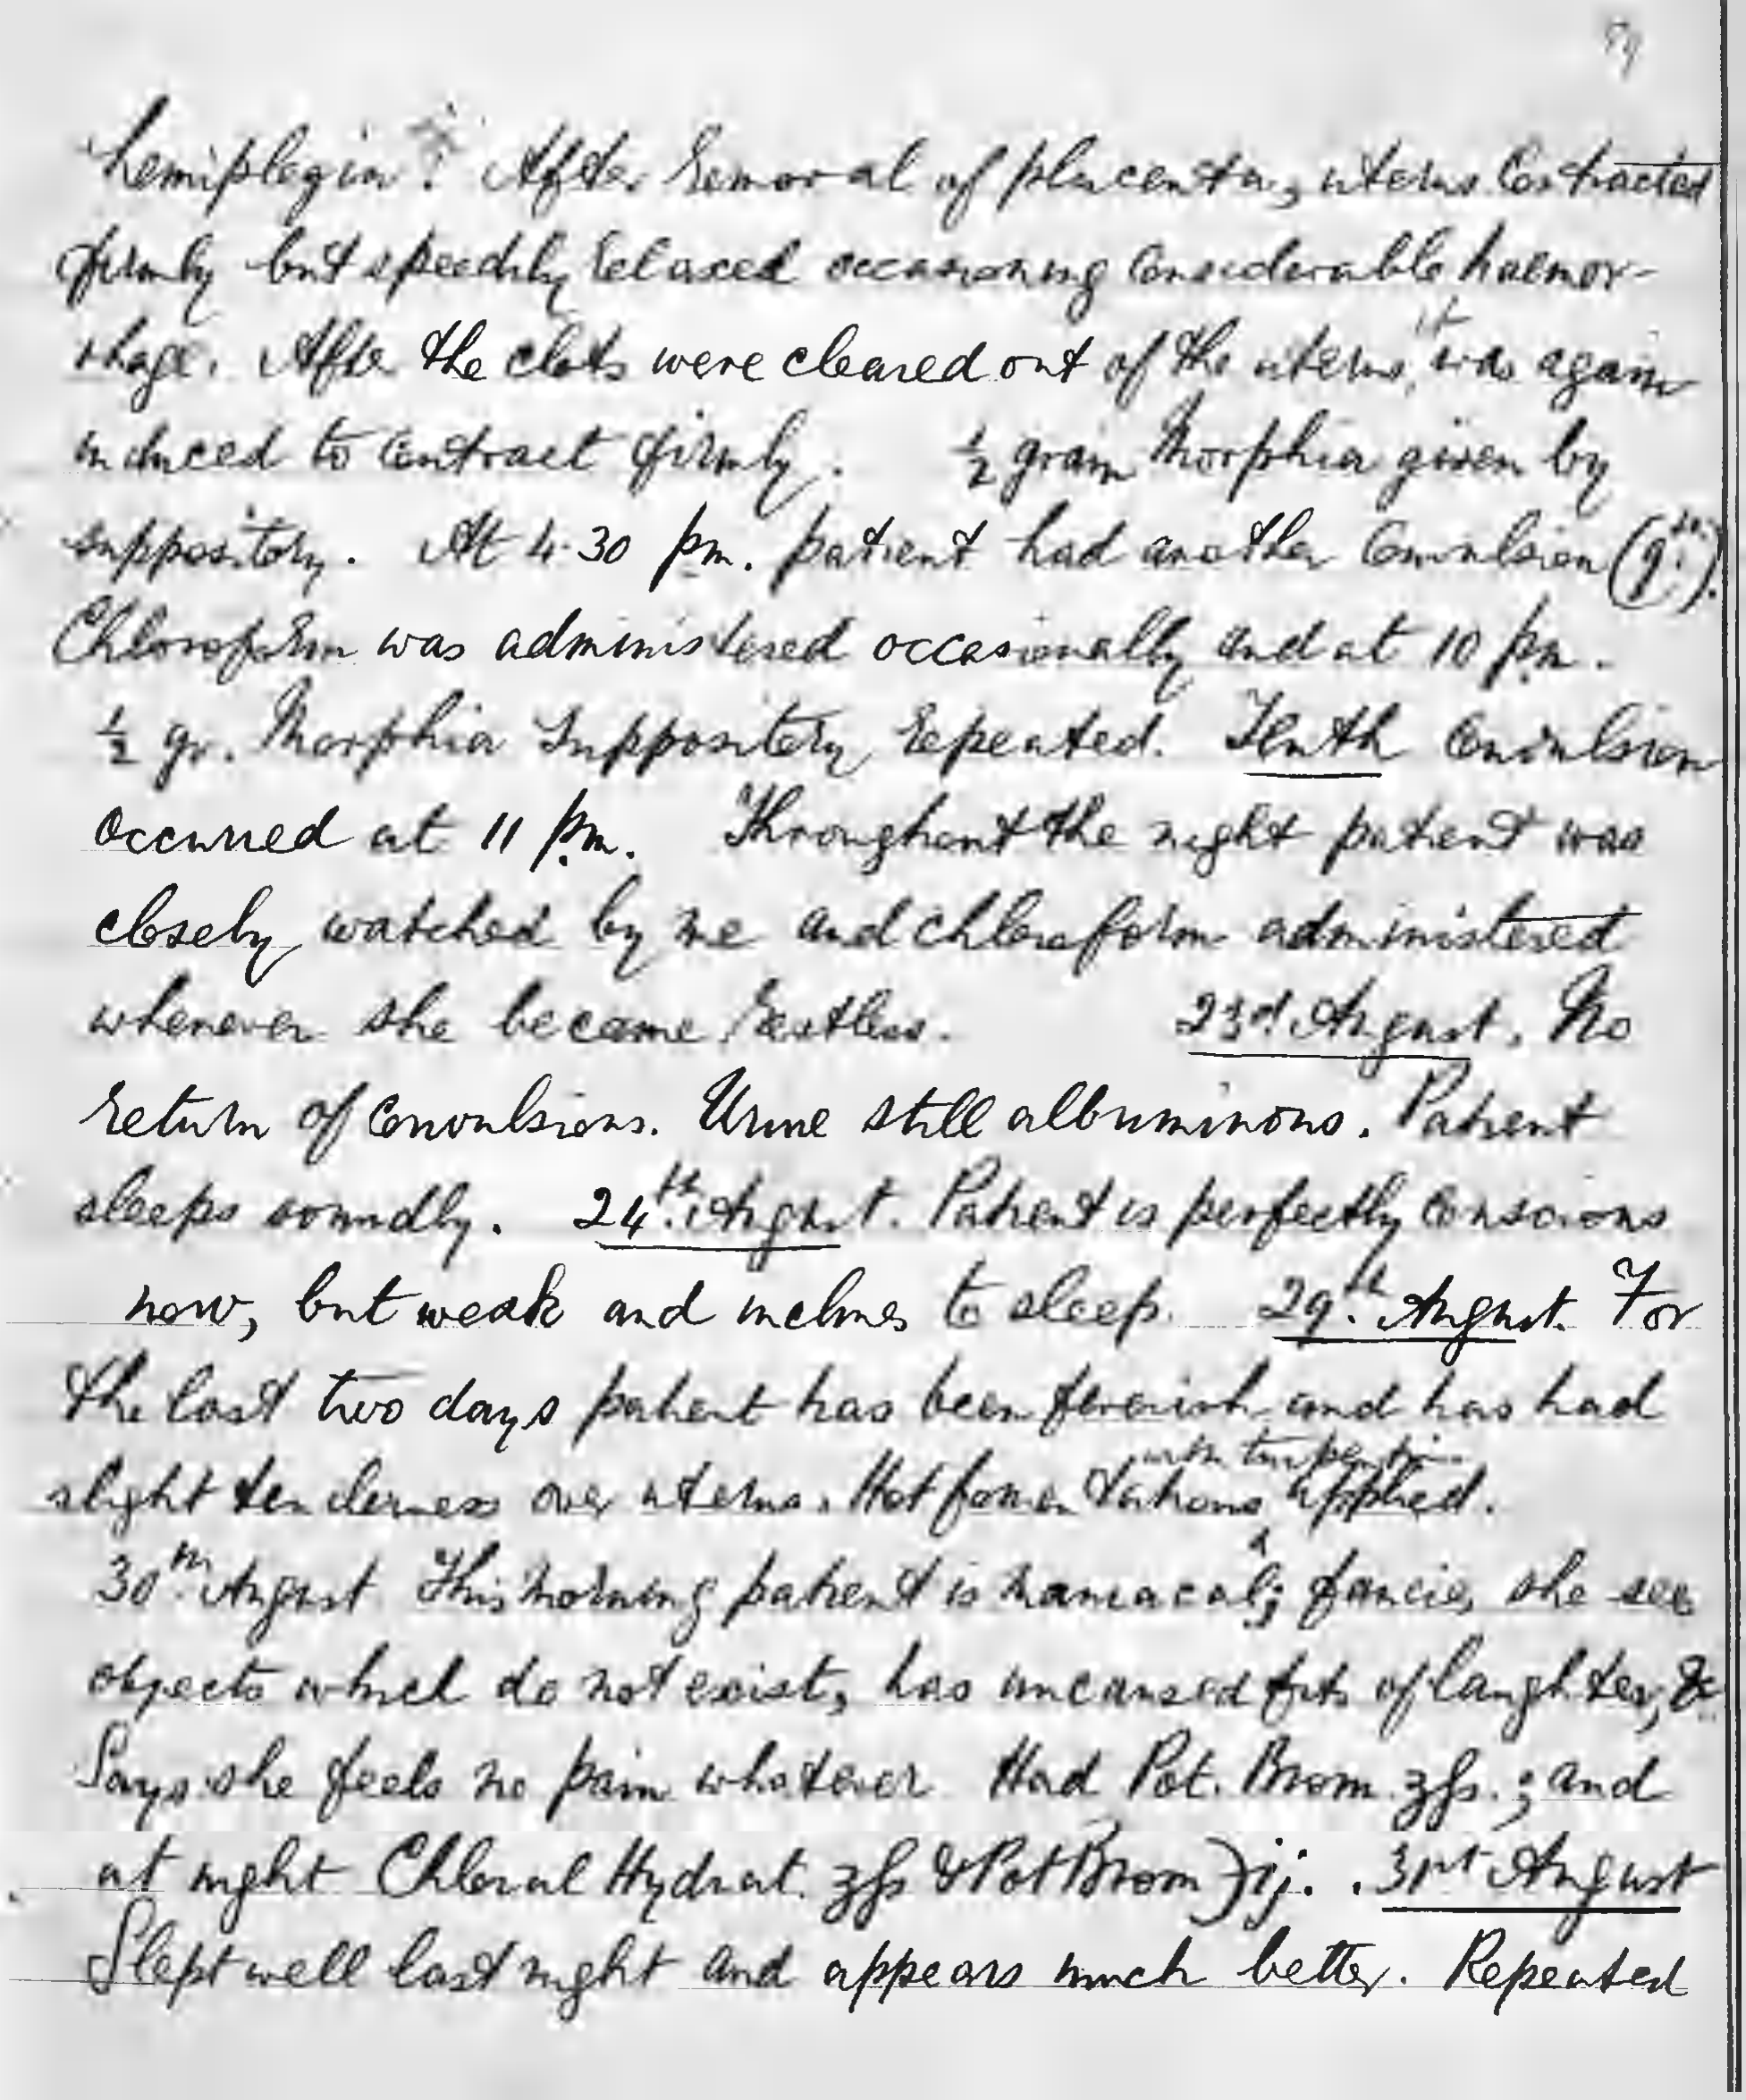 hemiplegia? After removal of placenta, uterus contracted
firmly but speedily relaxed occasioning considerable haemor-
rhage. After the clots were cleared out of the uterus, it was again
induced to contract firmly. ½ grain Morphia given by
suppository. At 4.30 p.m. patient had another Convulsion (9th.).
Chloroform was administered occasionally and at 10 p.m.
½ gr. Morphia Suppository repeated. Tenth Convulsion
occurred at 11 p.m. Throughout the night patient was
closely watched by me and chloroform administered
whenever she became restless. 23rd August. No
return of Convulsions. Urine still albuminous. Patient
sleeps soundly. 24th. August. Patient is perfectly conscious
now, but weak and inclines to sleep. 29th. August. For
the last two days patient has been feverish and has had
slight tenderness over uterus. Hot fomentations with turpentine applied.
30th. August This morning patient is maniacal; fancies she sees
objects which do not exist, has uncaused fits of laughter, &c
Says she feels no pain whatever Had Pot. Brom. ʒfs.; and
at night Chloral Hydrat. ʒfs & Pot Brom ℈ij. 31st August
Slept well last night and appears much better. Repeated